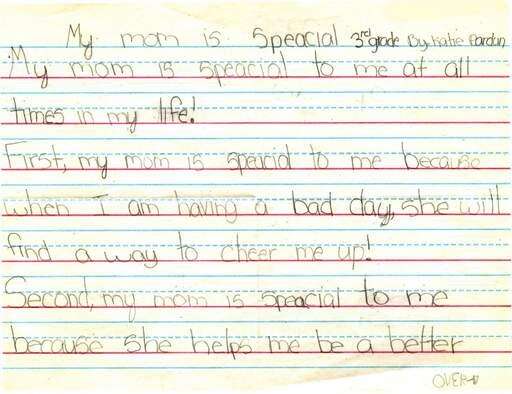 My mom is speacial 3rd grade By Katie Pardun
My mom is speacial to me at all
times in my life!
First, my mom is speacial to me because
when I am having a bad day, she will
find a way to cheer me up!
Second, my mom is speacial to me
because she helps me be a better
OVER→